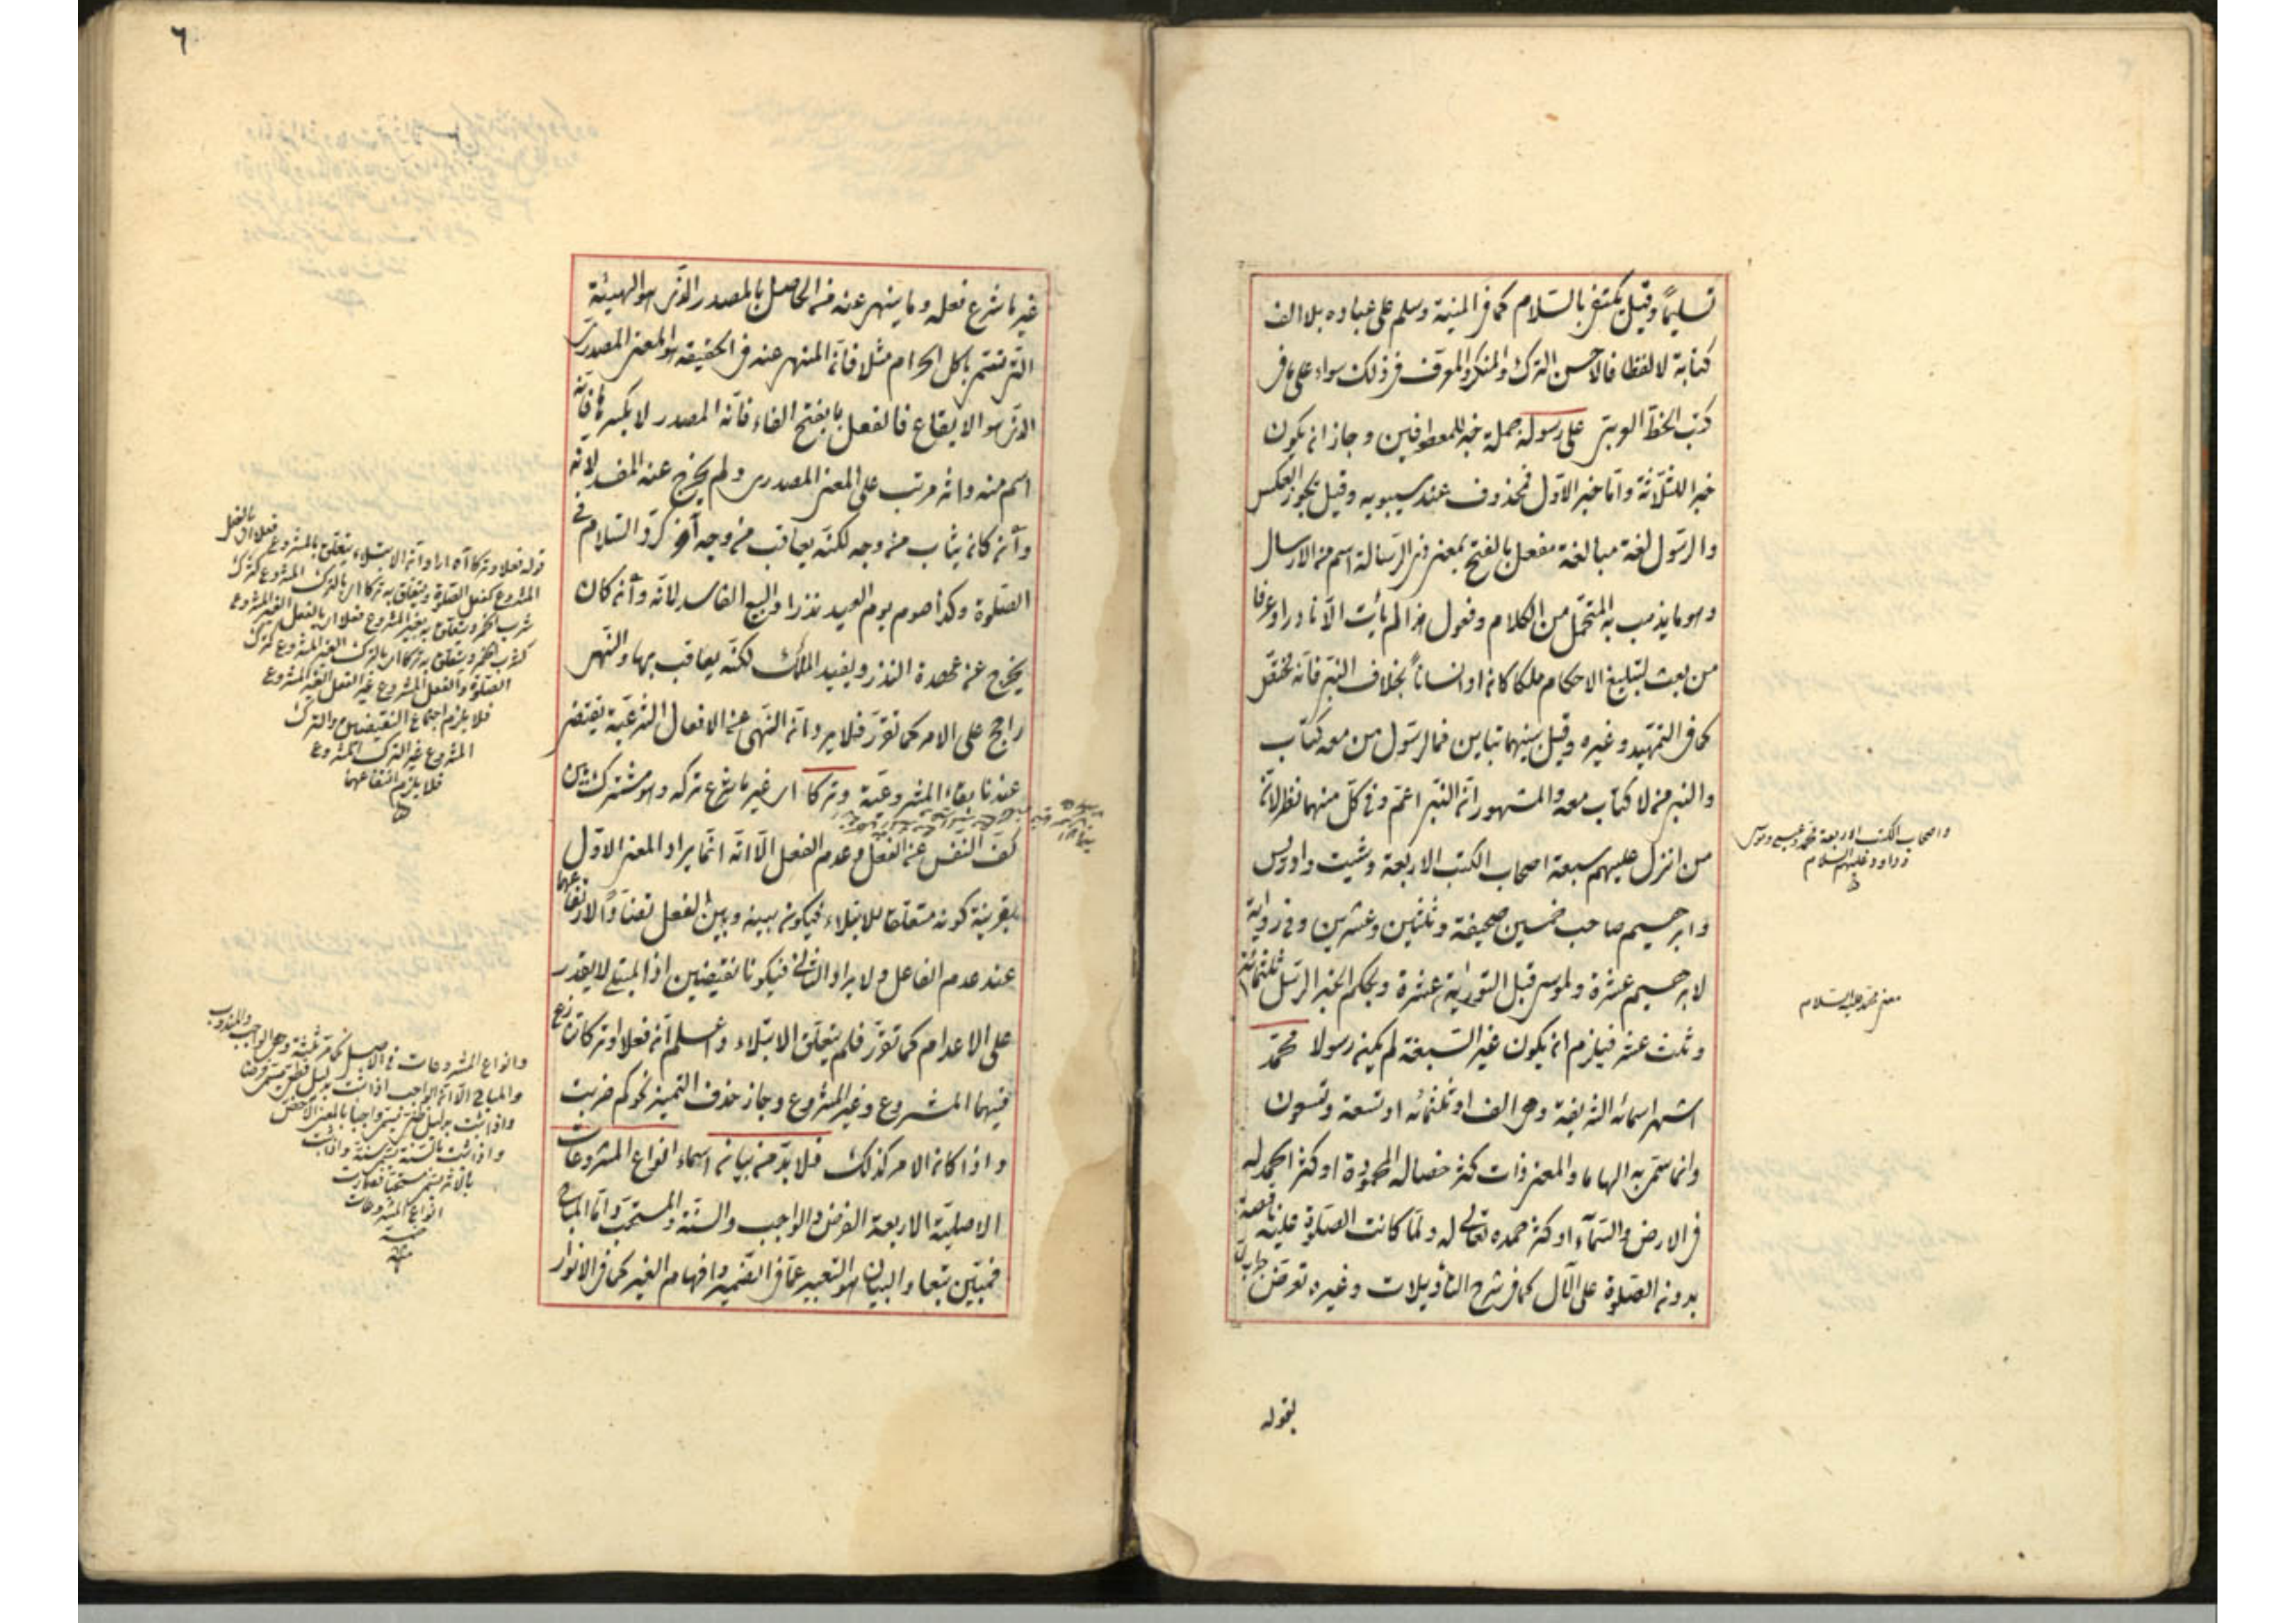 تسليما وقيل يكتفى بالسلام كما فى المنية وسلم على عباده بلا الف
كتابة لا لفظا فالاحسن الترك والمنكر والمعرف فى ذلك سواء على ما فى
كتب الخط على رسوله جملة خبر للمعطوفين وجاز ان يكون
خبرا للثلاثة واما خبر الاول فمحذوف عند سيبويه وقيل يجوز العكس
والرسول لغة مبالغة مفعل بالفتح بمعنى ذى الرسالة اسم من الارسال
وهو ما يذهب به المتحمل من الكلام وفعول هذا لم يأت الا نادرا وعرفا
من بعث لتبليغ الاحكام ملكا كان او انسانا بخلاف النبى فانه مختص
كما فى التمهيد وغيره وقيل بينهما تباين فالرسول من معه كتاب
والنبى من لا كتاب معه والمشهور ان النبى اعم وفى كل منهما نظر لان
من انزل عليهم سبعة اصحاب الكتب الاربعة وشيث وادريس
وابرهيم صاحب خمسين صحيفة وثلثين وعشرين وفى رواية
لابرهيم عشرة ولموسى قبل التورية عشرة وبحكم الخبر الرسل ثلثمائة
وثلث عشر فيلزم ان يكون غير السبعة لم يكن رسولا محمد
اشهر اسمائه الشريفة وهى الف او ثلثمائة او تسعة وتسعون
وانما سمى به الهاما والمعنى ذات كثر خصاله المحمودة او كثر الحمد له
فى الارض والسماء او كثر حمده تعالى له ولما كانت الصلوة عليه ناقصة
بدون الصلوة على الآل كما فى شرح التأويلات وغيره تعرض
بقوله
واصحاب الكتب الاربعة محمد وعيسى وموسى
وداود عليهم السلام
معنى محمد عليه السلام
٦
غير ما شرع فعله وما ينهى عنه من الحاصل بالمصدر الذى هو الهيئة
التى تتم باكل الحرام مثلا فان المنهى عنه فى الحقيقة هو المعنى المصدرى
الذى هو الايقاع فالفعل بفتح الفاء فانه المصدر لا بكسرها فانه
اسم منه واثر مرتب على المعنى المصدرى ولم يخرج عنه المفسد لانه
وان كان يثاب من وجه لكنه يعاقب من وجه آخر كرد السلام فى
الصلوة وكذا صوم يوم العيد نذرا والبيع الفاسد لانه وان كان
يخرج عن عهدة النذر ويفيد الملك لكنه يعاقب بهما والنهى
راجح على الامر كما تقرر فلا يرد ان النهى عن الافعال الشرعية يقتضى
عندنا بقاء المشروعية وتركا اى غير ما شرع تركه وهو مشترك بين
كف النفس عن الفعل وعدم الفعل الا انه انما يراد المعنى الاول
بقرينة كونه متعلقا للابتلاء فيكون بينه وبين الفعل تضادا لارتفاعهما
عند عدم الفاعل ولا يراد الثانى فيكونا نقيضين اذ المبتلى لا يقدر
على الاعدام كما تقرر فلم يتعلق الابتلاء واعلم ان فعلا وتركا
فيهما المشروع وغير المشروع وجاز حذف التميز نحو كم ضربت
واذا كان الامر كذلك فلا بد من بيان اسماء انواع المشروعات
الاصلية الاربعة الفرض والواجب والسنة والمستحب واما المباح
فمبين تبعا والبيان هو التعبير عما فى الضمير وافهام الغير كما فى الانوار
قوله فعلا وتركا اه اراد ان الابتلاء يتعلق بالمشروع فعلا اى بالفعل
المشروع كفعل الصلوة ويتعلق به تركا اى بالترك المشروع كترك
شرب الخمر ويتعلق بغير المشروع فعلا اى بالفعل الغير المشروع
كشرب الخمر ويتعلق به تركا اى بالترك الغير المشروع كترك
الصلوة والفعل المشروع غير الفعل الغير المشروع
فلا يلزم اجتماع النقيضين والترك
المشروع غير الترك المشروع
فلا يلزم ارتفاعهما
وانواع المشروعات فى الاصل ثلثة وهى الواجب والمندوب
والمباح الا ان الواجب اذا ثبت بدليل قطعى يسمى فرضا
واذا ثبت بدليل ظنى يسمى واجبا بالمعنى الاخص
واذا ثبت بالسنة يسمى سنة واذا ثبت
انواع المشروعات